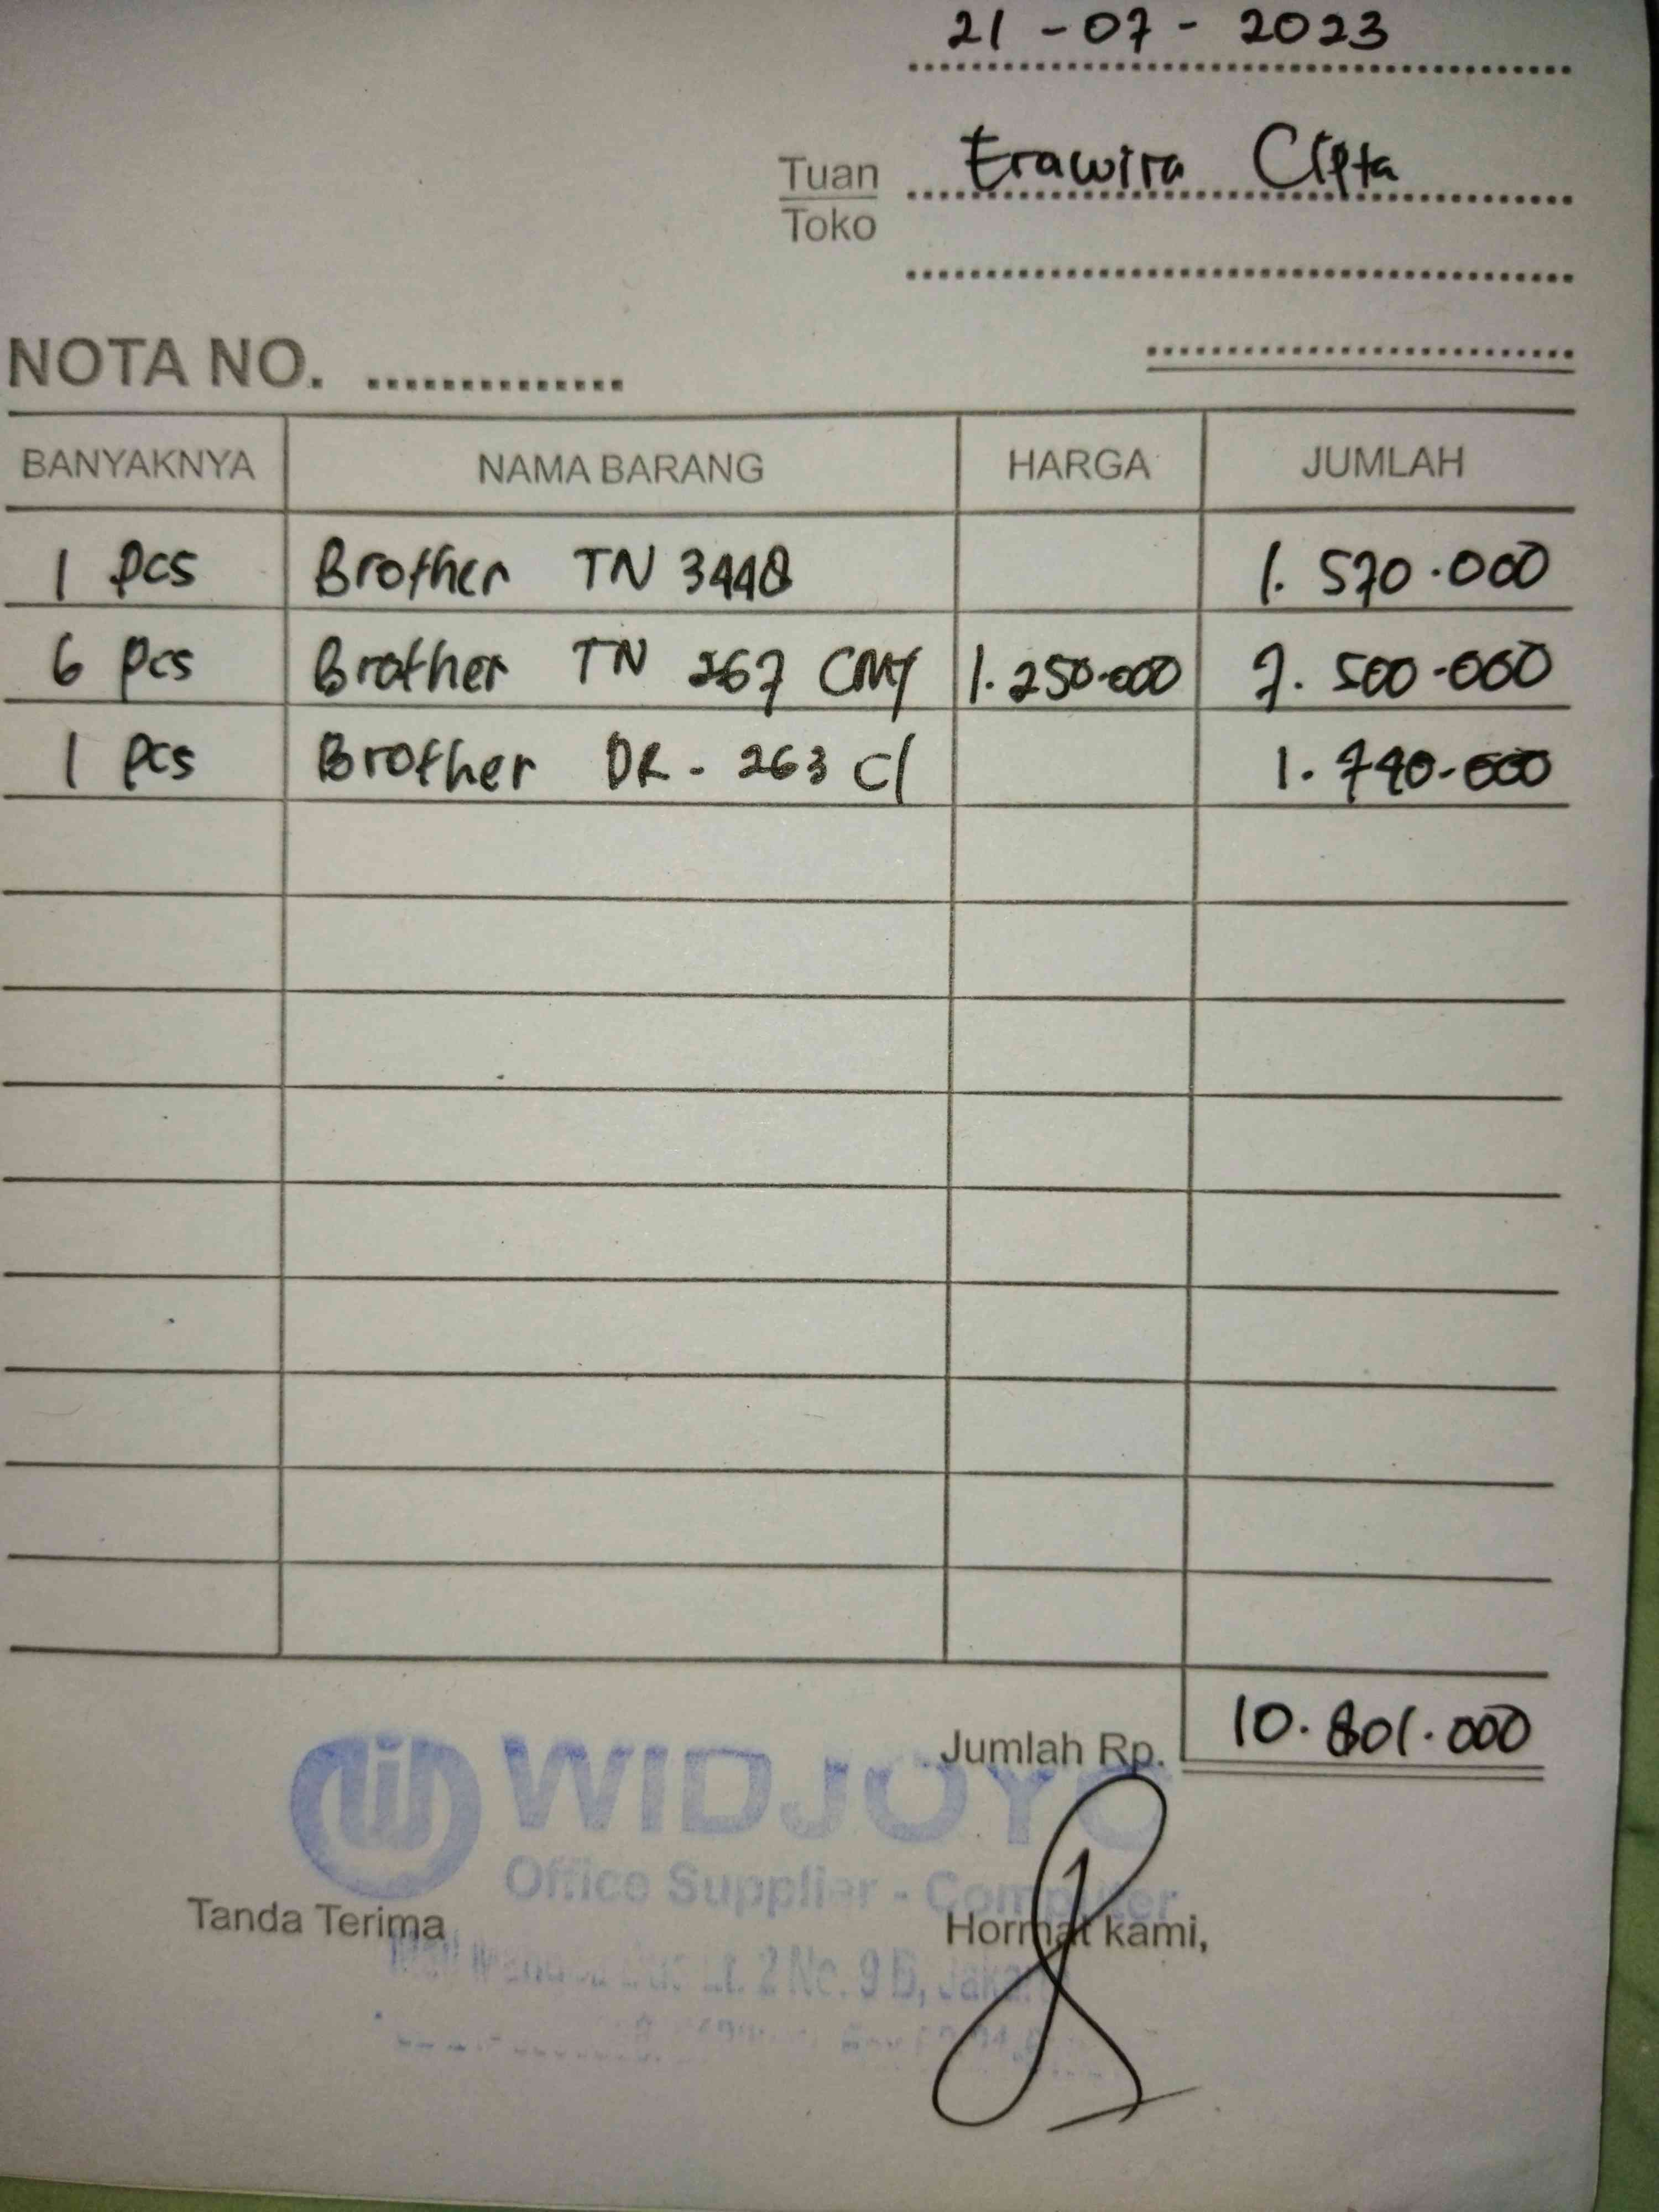 21 - 07 - 2023
Tuan Erawira Cipta
Toko
NOTA NO.
BANYAKNYA NAMA BARANG HARGA JUMLAH
1 pcs Brother TN 3448 1.570.000
6 pcs Brother TN 267 CMY 1.250.000 7.500.000
1 pcs Brother DR - 263 Cl 1.740.000
Jumlah Rp. 10.801.000
WIDJOYO
Office Supplier - Computer
Tanda Terima Hormat kami,
Lt. 2 No. 9 B,